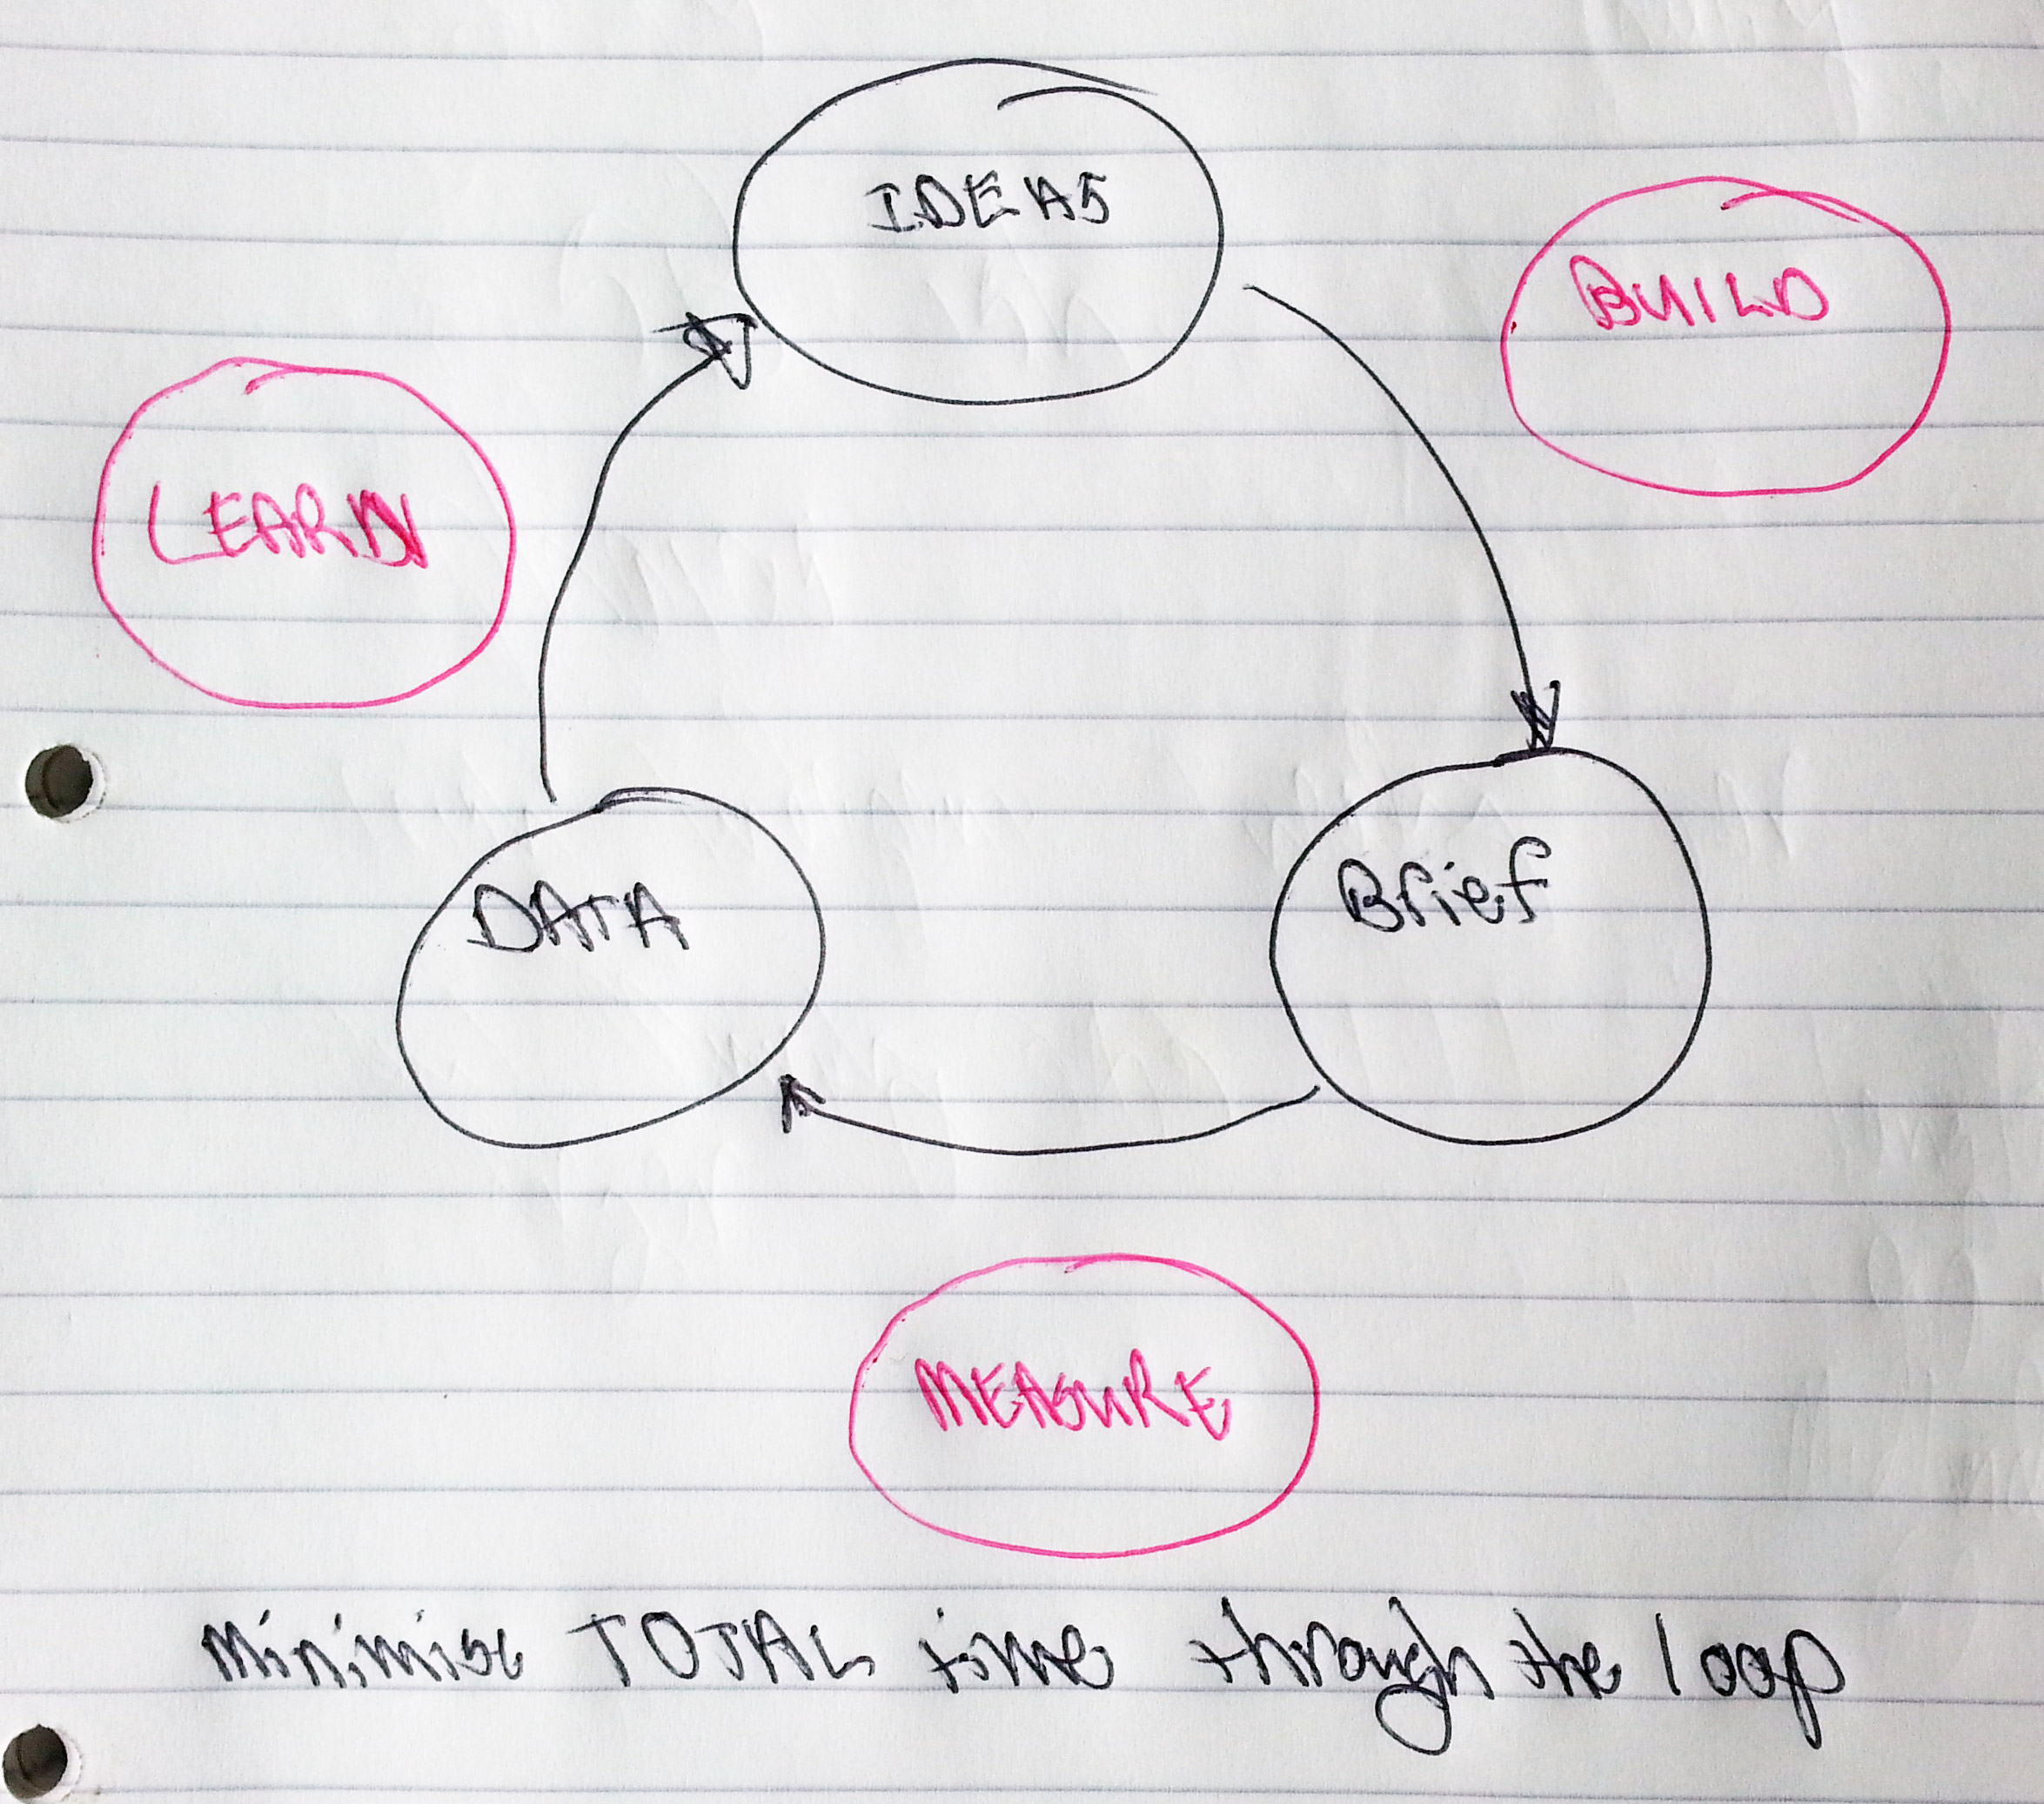 IDEAS
BUILD
LEARN
DATA
Brief
MEASURE
minimise TOTAL time through the loop